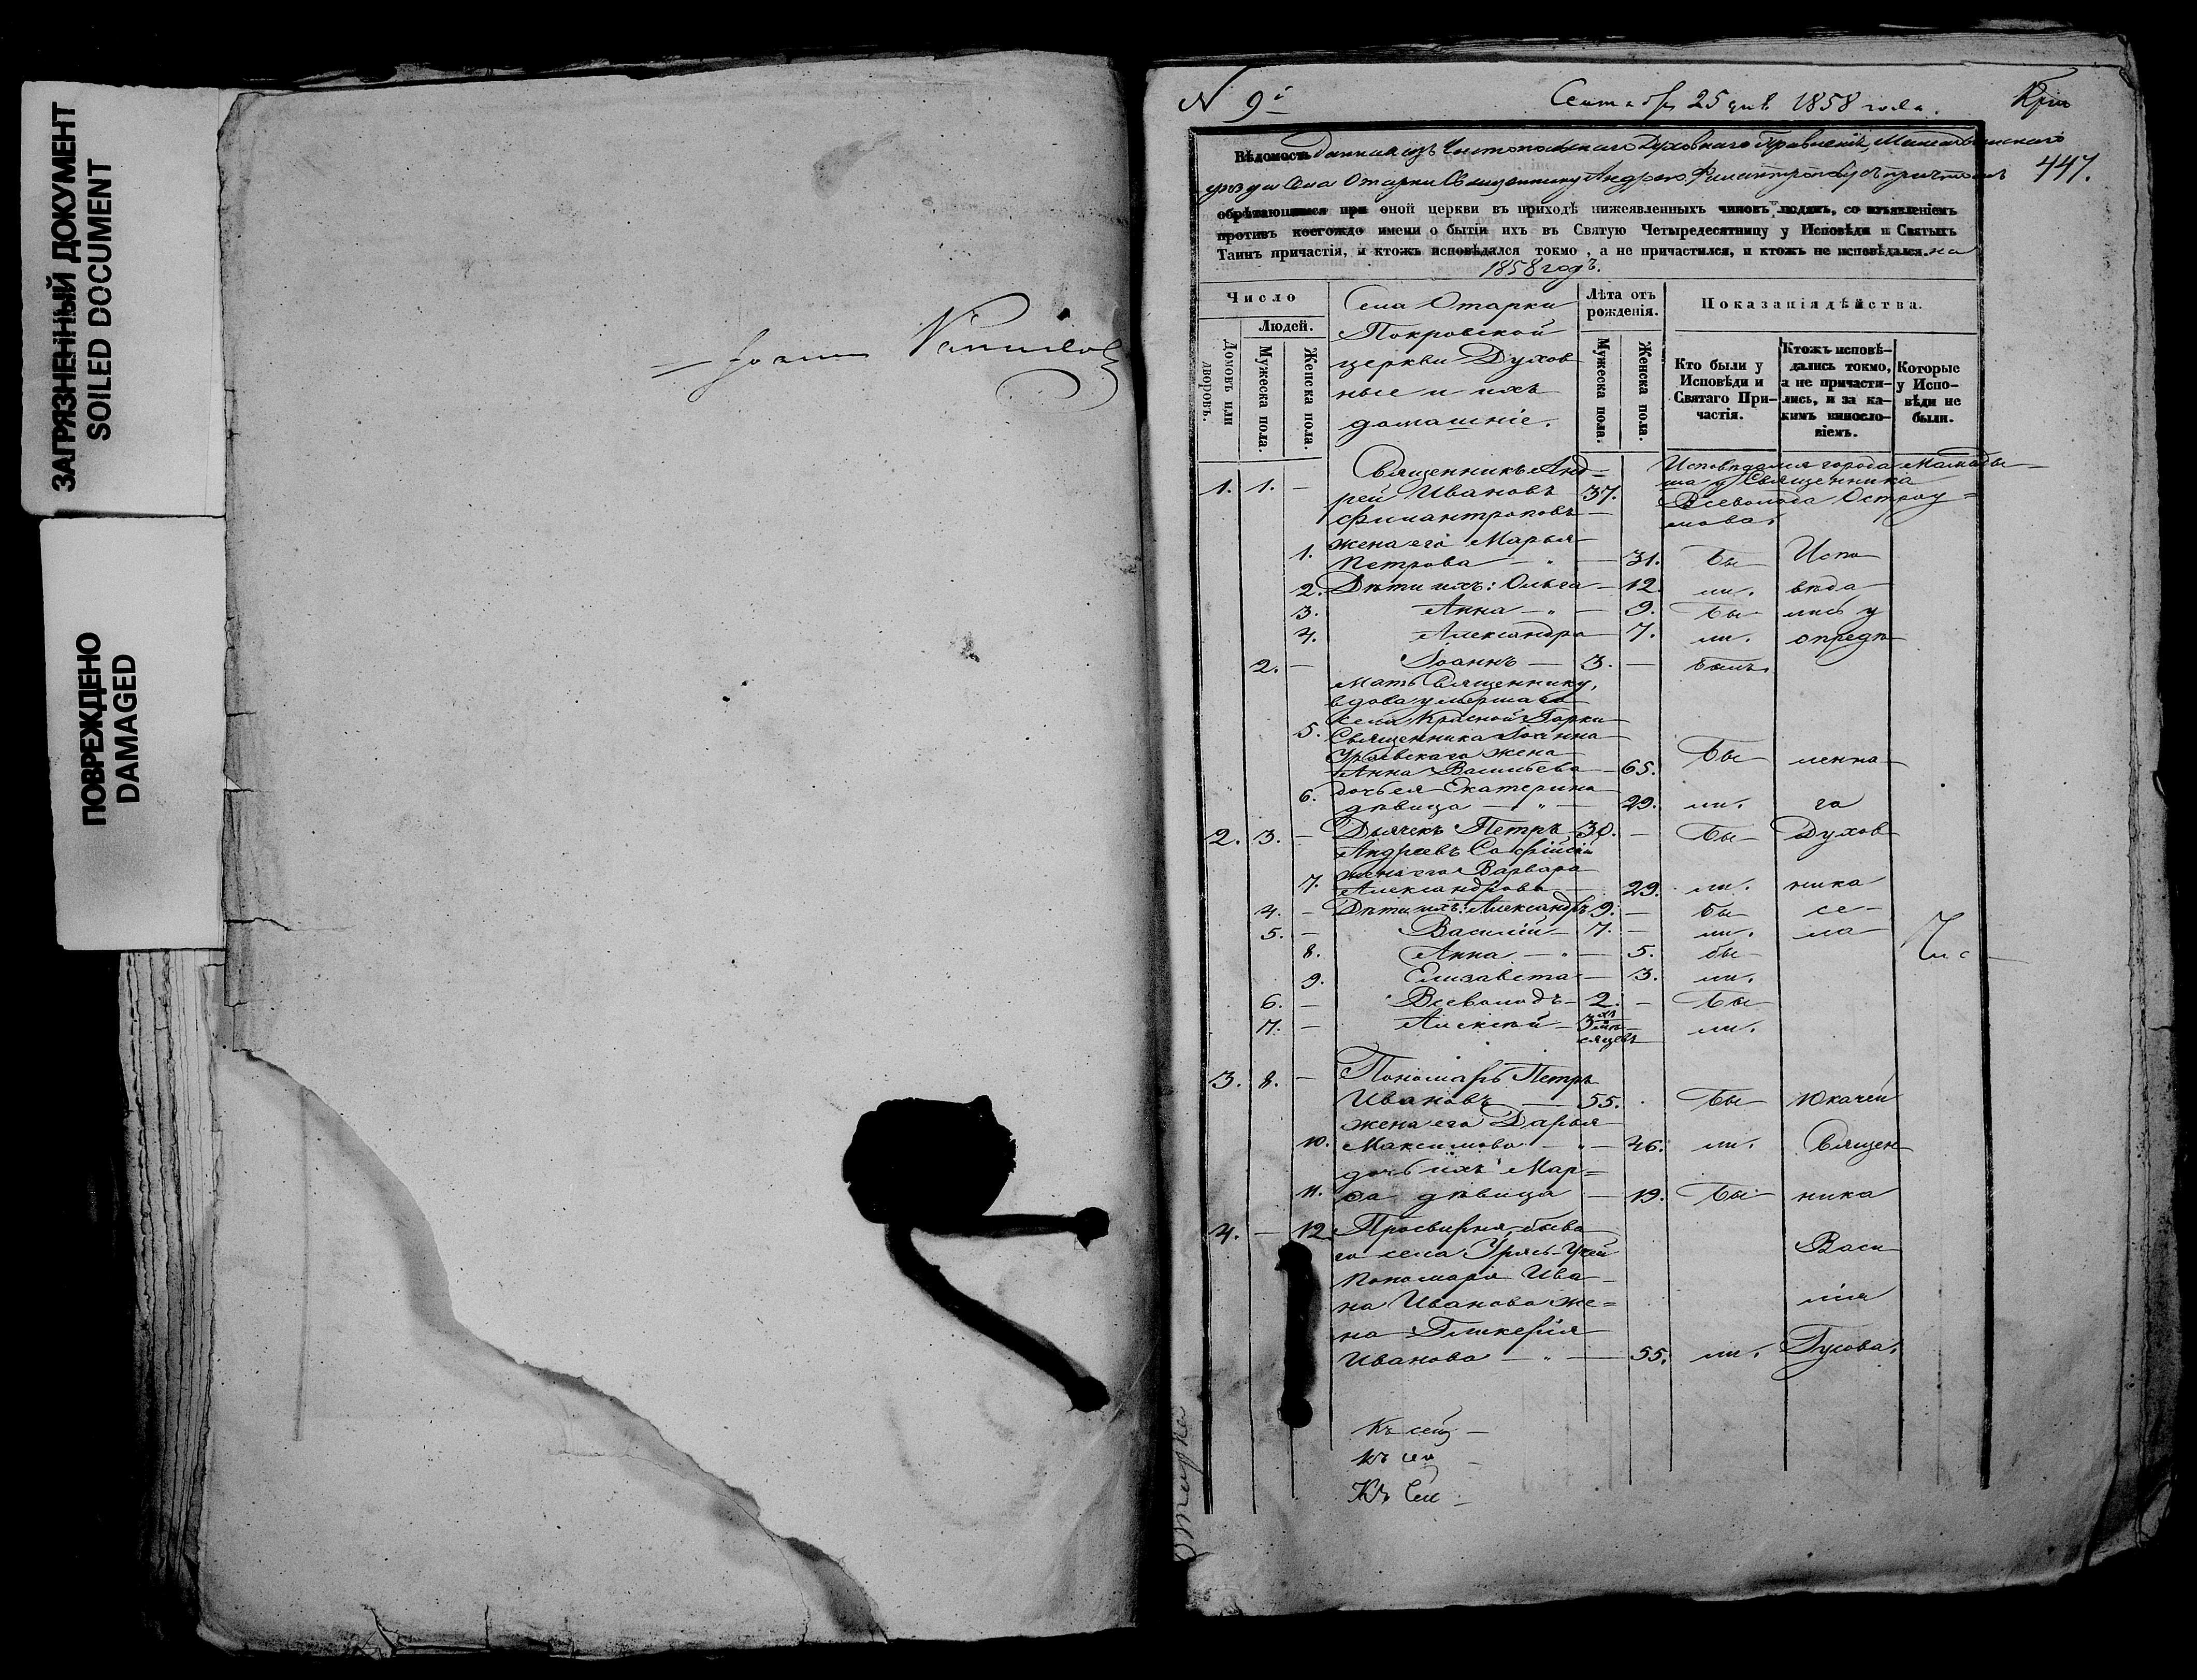 ЗАГРЯЗНЕННЫЙ ДОКУМЕНТ
SOILED DOCUMENT
ПОВРЕЖДЕНО
DAMAGED
N 9й
25 1858 года.
447.
Вѣдомость данная изъ Чистопольскаго Духовнаго Правленія, Мамадышскаго
уѣзда села Отарки Священнику Андрею Филантропову съ причтомъ
обрѣтающимся при оной церкви въ приходѣ нижеявленныхъ чиновъ людямъ, со изъявленіемъ
противъ коегождо имени о бытіи ихъ въ Святую Четыредесятницу у Исповѣди и Святыхъ
Таинъ причастія, и ктожъ исповѣдался токмо, а не причастился, и ктожъ не исповѣдался. на
1858 годъ.
Число
Людей.
Домовъ или дворовъ.
Мужеска пола.
Женска пола.
Села Отарки
Покровской
церкви Духов
ные и ихъ
домашніе.
Лѣта отъ рожденія.
Мужеска пола.
Женска пола.
Показанія дѣйства.
Кто были у Исповѣди и Святаго Причастія.
Ктожъ исповѣдались токмо, а не причастились, и за какимъ винословіемъ.
Которые у Исповѣди не были.
Священникъ Анд-
1. 1. — рей Ивановъ 37.
Филантроповъ —
Исповѣдался города Мамады-
ша у Священника
Всеволода Остроу=
мова.
жена его Марья
1. Петрова — 31. бы Испо
2. Дѣти ихъ: Ольга — 12. ли. вѣда
3. Анна — 9. бы лись у
4. Александра 7. ли. опредѣ
2. — Іоаннъ — 3. — былъ.
Мать Священнику,
вдова умершаго
села Красной Горки
5. Священника Іоанна
жена
Анна Васильева — 65. бы леннa
6. дочь ея Екатерина
дѣвица — 29. ли. го
2. 3. — Дьячекъ Петръ 30. — бы Духов
Андреевъ Софійскій
7. жена его Варвара
Александрова — 29. ли. ника
4. — Дѣти ихъ: Александръ 9. — бы се-
5. — Василій — 7. — ли. ла
8. Анна — 5. бы
9. Елизавета — 3. ли.
6. — Всеволодъ — 2. — бы
7. — Алексѣй — 3хъ мѣсяцевъ ли.
3. 8. — Пономарь Петръ
Ивановъ — 55. бы Юкачей
жена его Дарья
10. Максимова — 46. ли. Священ
дочь ихъ Мар=
11. ѳа дѣвица — 19. бы ника
4. — 12. Просвирня бывша
го села Урясь-Учей Васи
Пономаря Ива-
на Иванова же= лія
на Гликерія
Иванова — 55. ли. Гусова.
Чис-